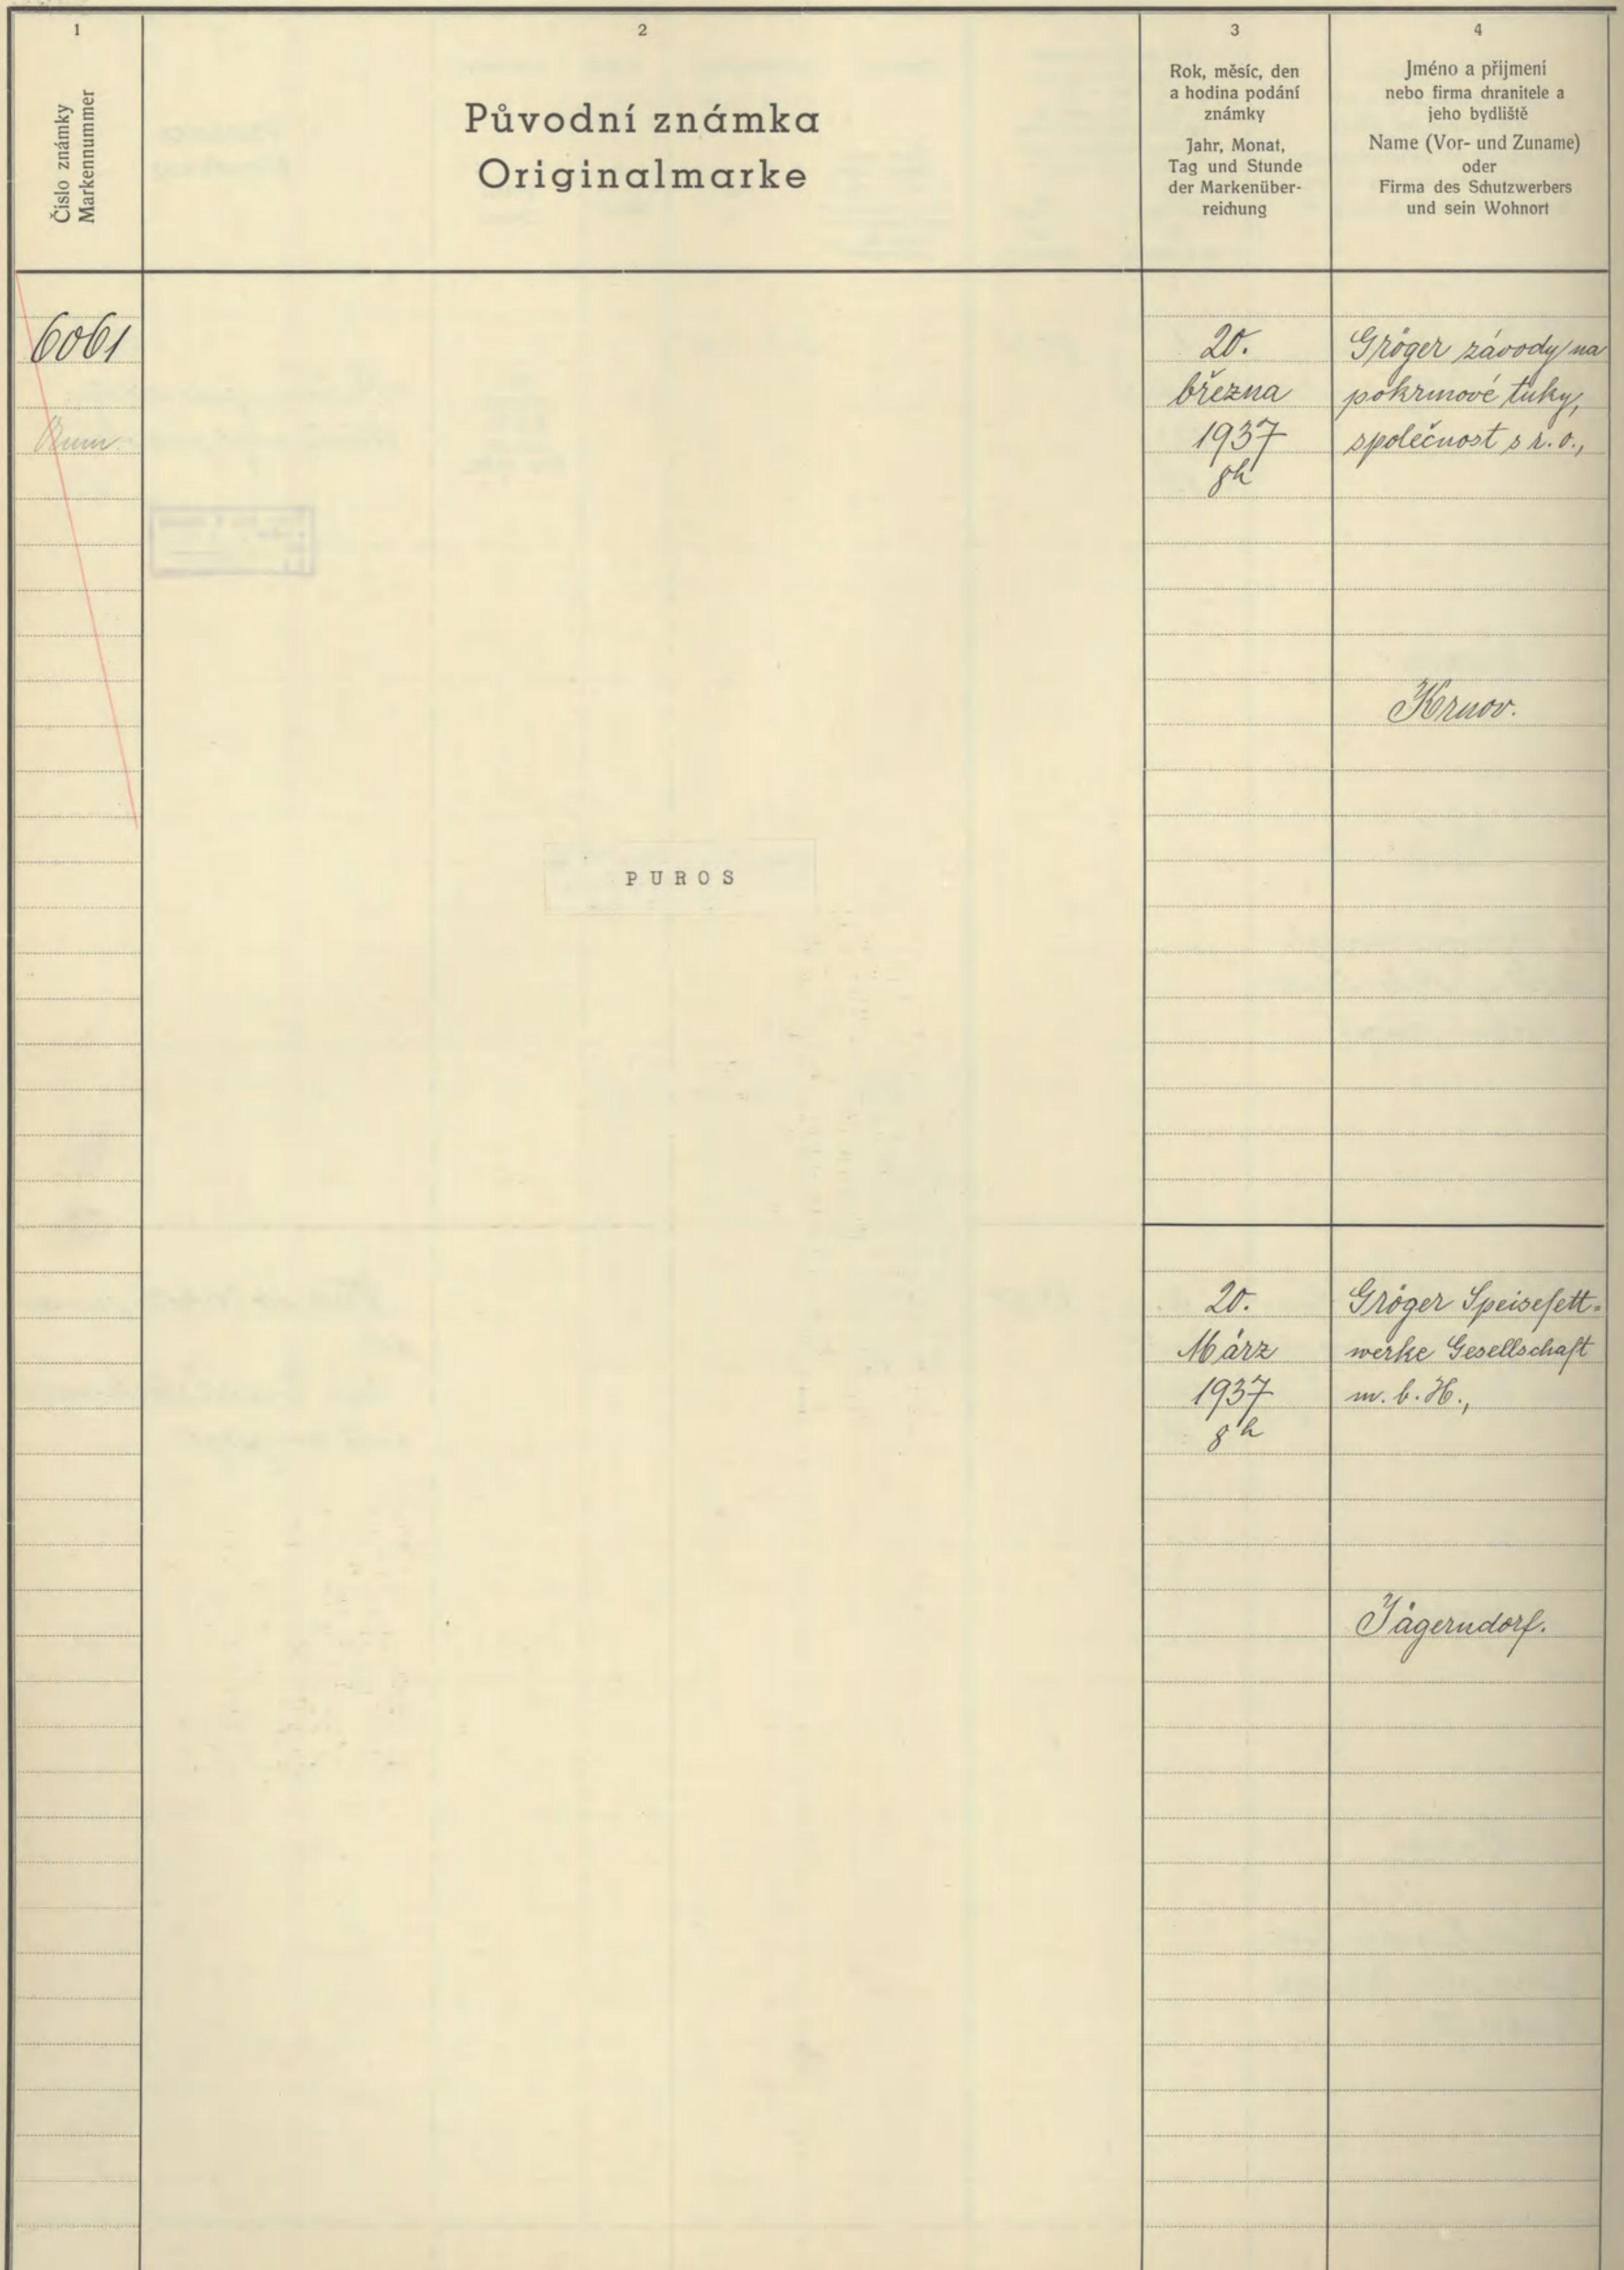 1
Číslo známky
Markennummer
2
Původní známka
Originalmarke
3
Rok, měsíc, den
a hodina podání
známky
Jahr, Monat,
Tag und Stunde
der Markenüber-
reichung
4
Jméno a přijmení
nebo firma chranitele a
jeho bydliště
Name (Vor- und Zuname)
oder
Firma des Schutzwerbers
und sein Wohnort
6061
20.
března
1937
8h
Gröger závody na
pokrmové tuky,
společnost s r. o.,
Krnov.
PUROS
20.
März
1937
8h
Gröger Speisefett-
werke Gesellschaft
m. b. H.,
Jägerndorf.